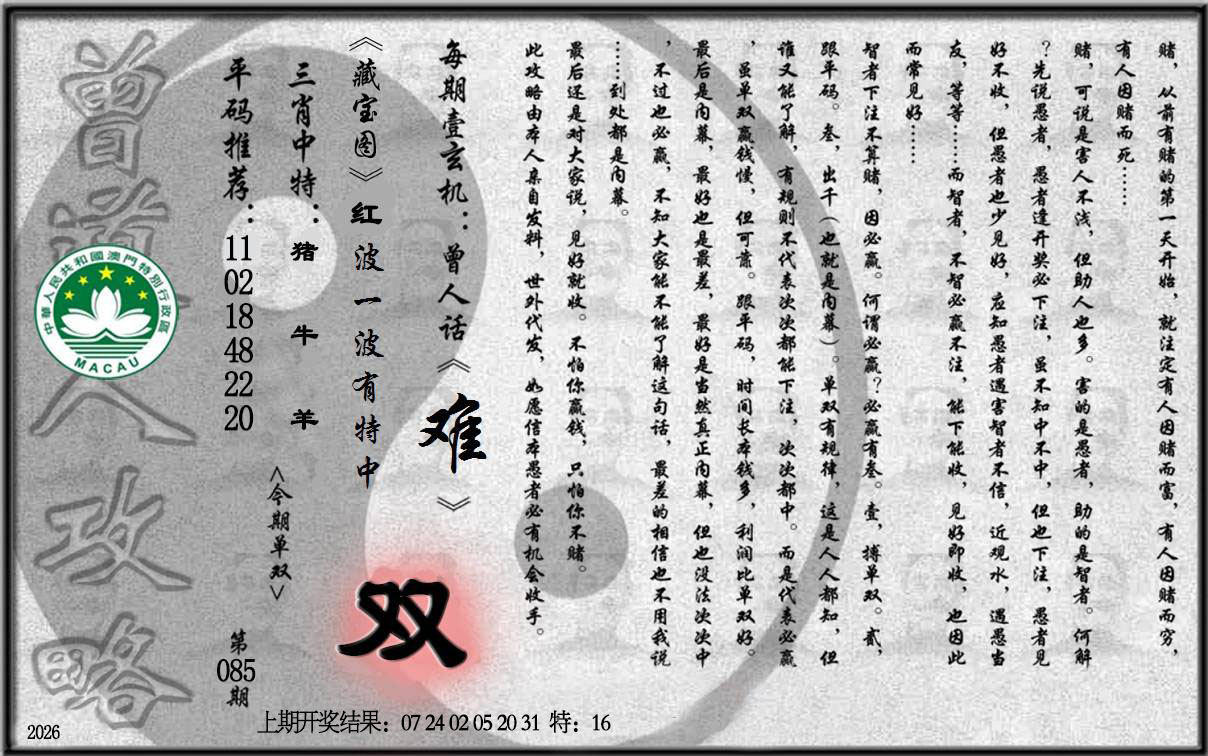 赌，从前有赌的第一天开始，就注定有人因赌而富，有人因赌而穷，
有人因赌而死……
赌，可说是害人不浅，但助人也多。害的是愚者，助的是智者。何解
？先说愚者，愚者逢开奖必下注，虽不知中不中，但也下注，愚者见
好不收，但愚者也少见好，应知愚者遇害智者不信，近观水，遇愚当
友，等等……而智者，不智必赢不注，能下能收，见好即收，也因此
而常见好……
智者下注不算赌，因必赢。何谓必赢？必赢有叁。壹，搏单双。贰，
跟平码。叁，出千（也就是内幕）。单双有规律，这是人人都知，但
谁又能了解，有规则不代表次次都能下注，次次都中。而是代表必赢
，虽单双赢钱慢，但可靠。跟平码，时间长本钱多，利润比单双好。
最后是内幕，最好也是最差，最好是当然真正内幕，但也没法次次中
，不过也必赢，不知大家能不能了解这句话，最差的相信也不用我说
……到处都是内幕。
最后还是对大家说，见好就收。不怕你赢钱，只怕你不赌。
此攻略由本人亲自发料，世外代发，如愿信本愚者必有机会收手。
每期壹玄机：曾人话《难》
《藏宝图》红波一波有特中
双
三肖中特：猪牛羊
<今期单双>
平码推荐：11 02 18 48 22 20
第085期
曾道人攻略
中華人民共和國澳門特別行政區
MACAU
上期开奖结果：07 24 02 05 20 31 特：16
2026